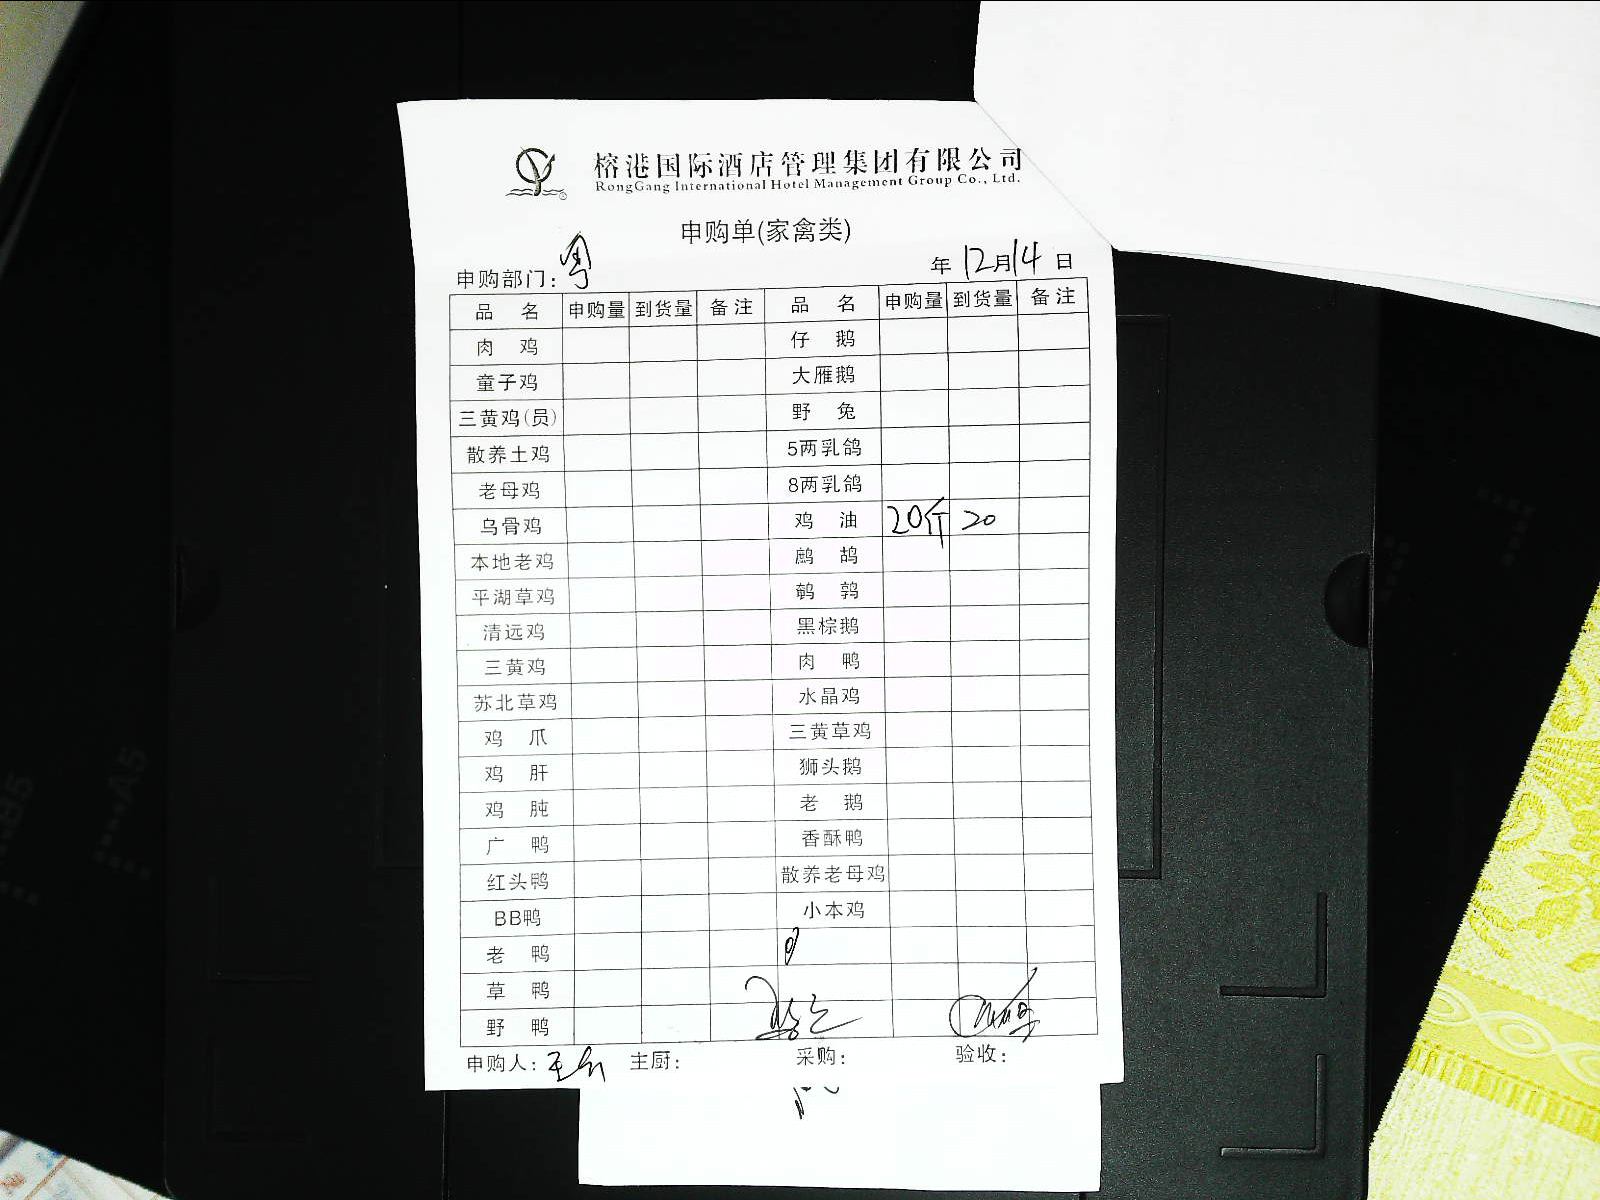 榕港国际酒店管理集团有限公司
RongGang International Hotel Management Group Co., Ltd.
申购单(家禽类)
申购部门：粤 年12月14日
品名 申购量 到货量 备注 品名 申购量 到货量 备注
肉鸡 仔鹅
童子鸡 大雁鹅
三黄鸡(员) 野兔
散养土鸡 5两乳鸽
老母鸡 8两乳鸽
乌骨鸡 鸡油 20斤 20
本地老鸡 鹧鸪
平湖草鸡 鹌鹑
清远鸡 黑棕鹅
三黄鸡 肉鸭
苏北草鸡 水晶鸡
鸡爪 三黄草鸡
鸡肝 狮头鹅
鸡肫 老鹅
广鸭 香酥鸭
红头鸭 散养老母鸡
BB鸭 小本鸡
老鸭
草鸭
野鸭
申购人： 主厨： 采购： 验收：
A5